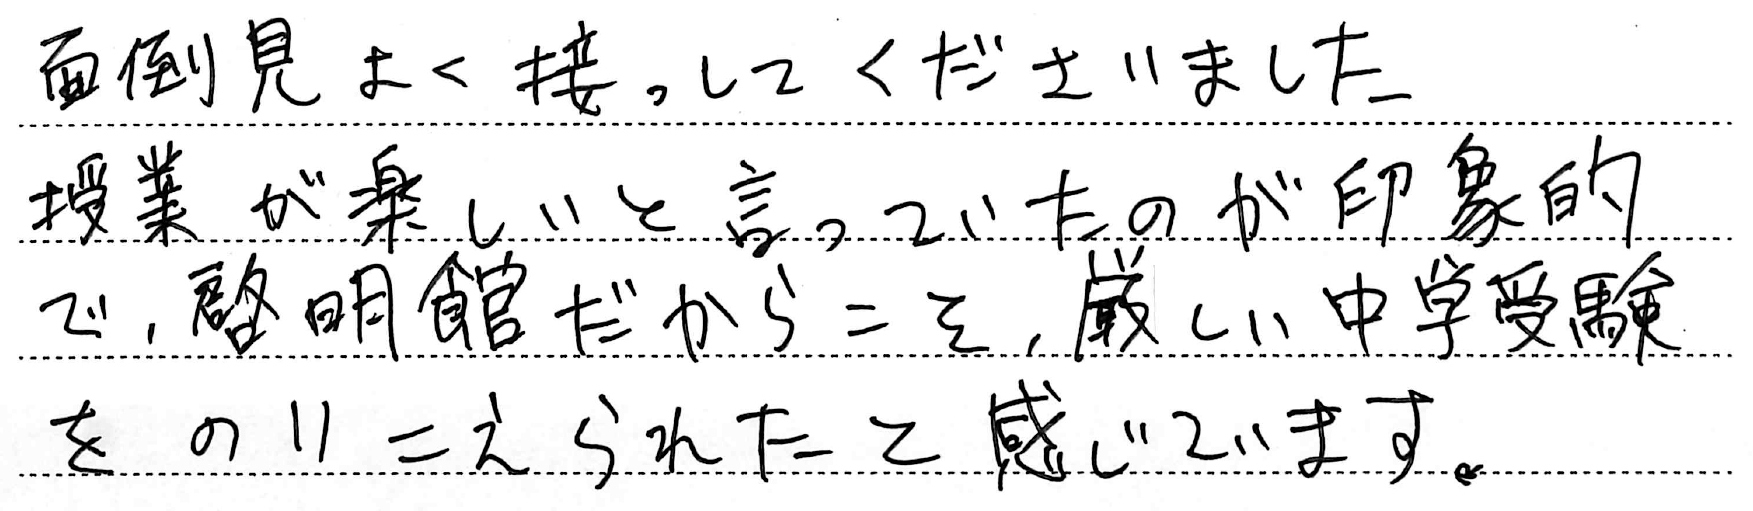 面倒見よく接っしてくださいました
授業が楽しいと言っていたのが印象的
で、啓明館だからこそ、厳しい中学受験
をのりこえられたと感じています。